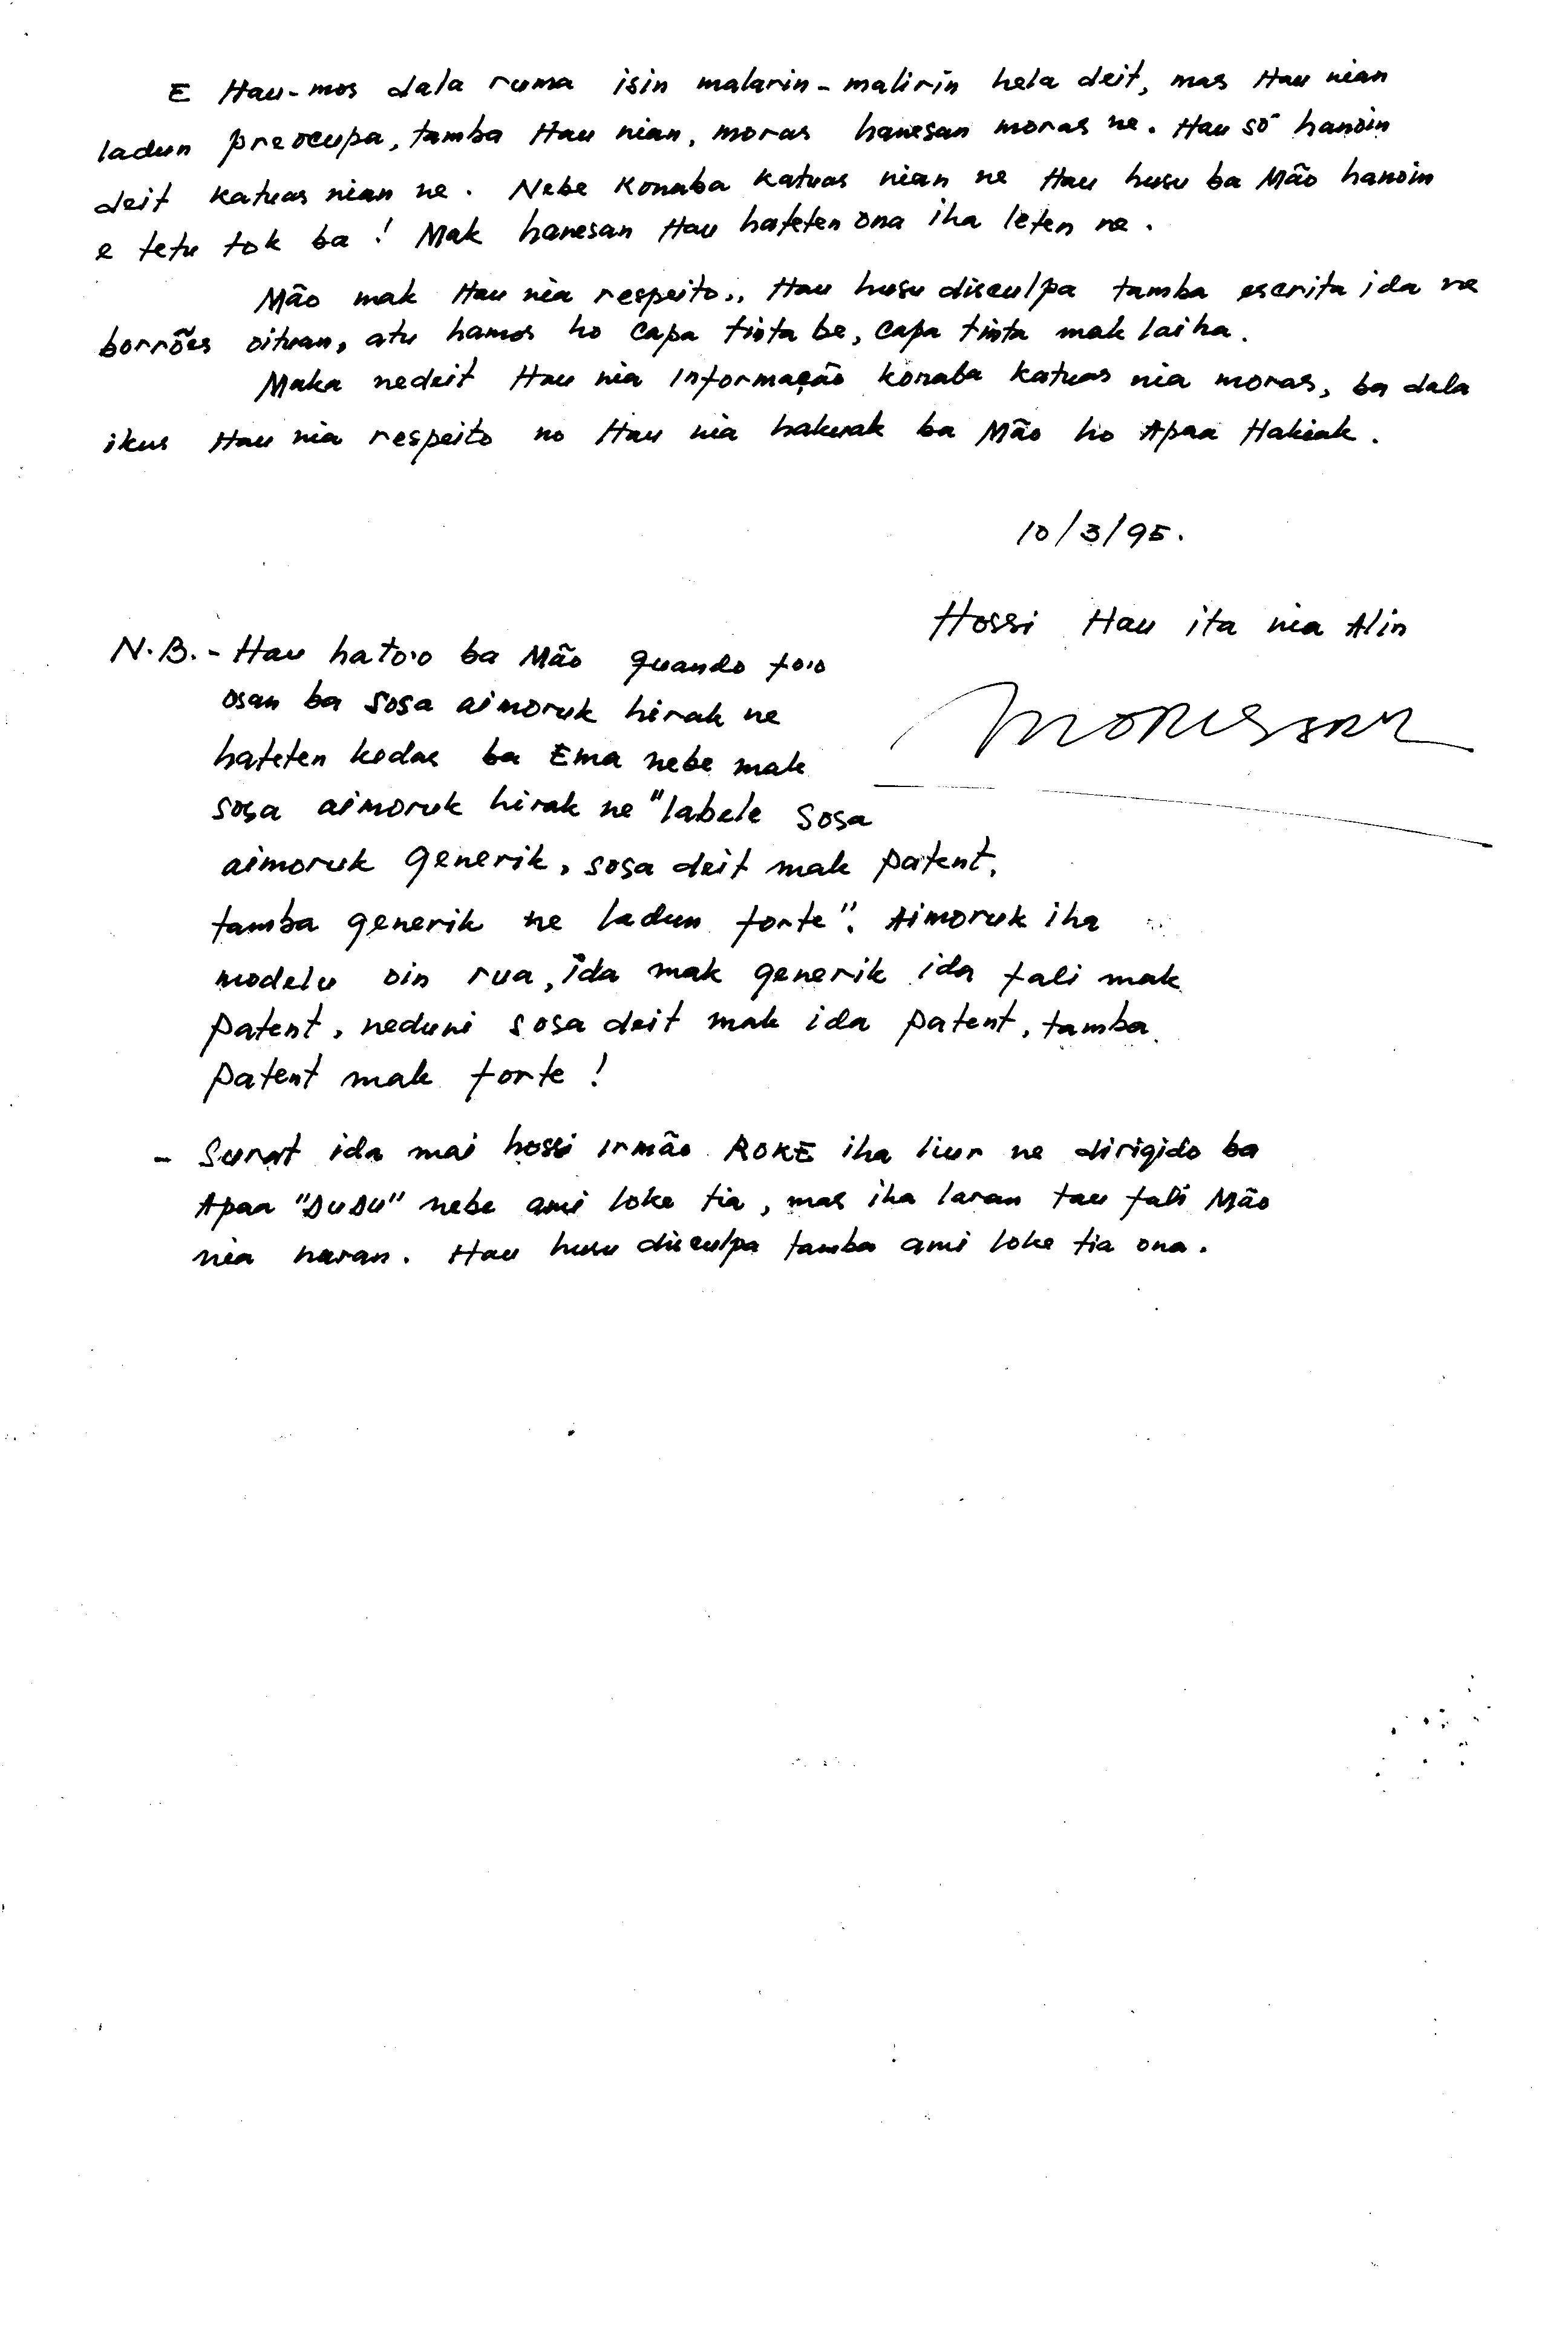 E Hau-mos dala ruma isin malarin-malirin hela deit, mas Hau nian
ladun preocupa, tamba Hau nian, moras hanesan moras ne. Hau só hanoin
deit katuas nian ne. Nebe konaba katuas nian ne Hau husu ba Mão hanoin
e tetu tok ba! Mak hanesan Hau hateten ona iha leten ne.
Mão mak Hau nia respeito., Hau husu disculpa tamba escrita ida ne
borrões oituan, atu hamos ho capa tinta be, capa tinta mak laiha.
Maka nedeit Hau nia informação konaba katuas nia moras, ba dala
ikus Hau nia respeito no Hau nia hakuak ba Mão ho Apaa Hakiak.
10/3/95.
Hossi Hau ita nia Alin
N.B. - Hau hato'o ba Mão quando to'o
osan ba sosa aimoruk hirak ne
hateten kedas ba Ema nebe mak
sosa aimoruk hirak ne "labele sosa
aimoruk generik, sosa deit mak patent,
tamba generik ne ladun forte". Aimoruk iha
modelu oin rua, ida mak generik ida fali mak
patent, neduni sosa deit mak ida patent, tamba
patent mak forte!
- Surat ida mai hossi irmão ROKE iha liur ne dirigido ba
Apaa "DUDU" nebe ami loke tia, mas iha laran tau fali Mão
nia naran. Hau husu disculpa tamba ami loke tia ona.